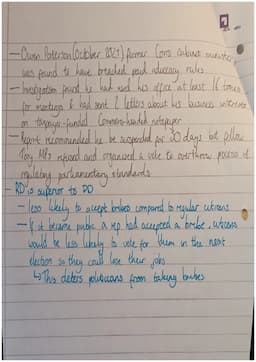 - Owen Paterson (October 2021) former Cons cabinet minister
was found to have breached paid advocacy rules
- Investigation found he had used his office at least 16 times
for meetings & had sent 2 letters about his business interests
on taxpayer-funded Commons-headed notepaper
- Report recommended he be suspended for 30 days but fellow
Tory MPs refused and organised a vole to overturn process of
regulating parliamentary standards
- RD is superior to DD
- less likely to accept bribes compared to regular citizens
- If it became public a rep had accepted a bribe, citizens
would be less likely to vote for them in the next
election so they could lose their jobs
↳ This deters politicians from taking bribes